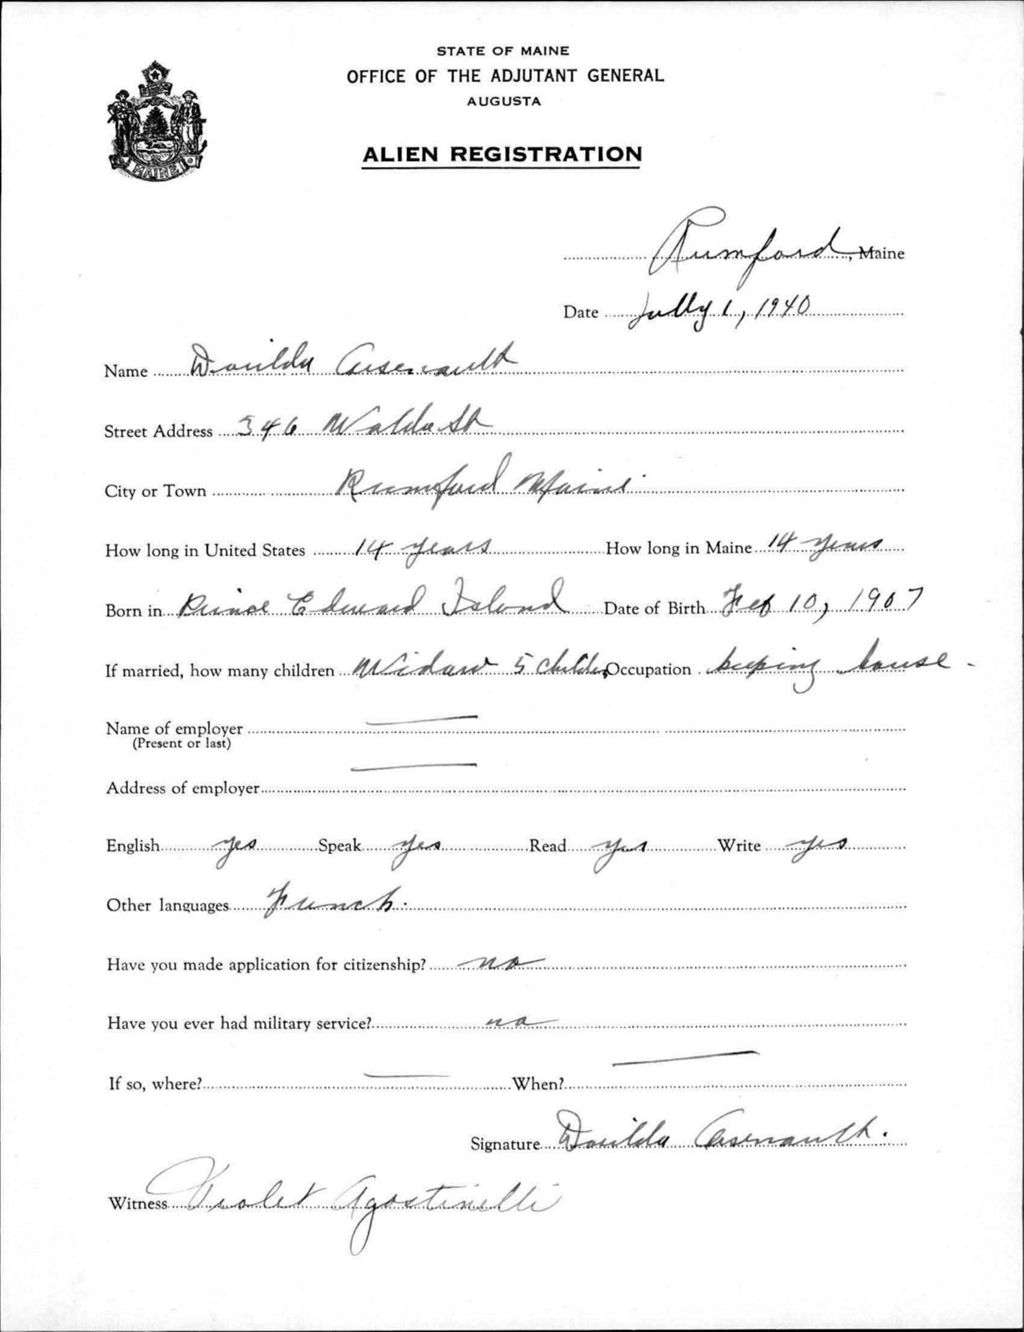 STATE OF MAINE
OFFICE OF THE ADJUTANT GENERAL
AUGUSTA
ALIEN REGISTRATION
MAINE
Rumford, Maine
Date July 1, 1940
Name Dorilda Arsenault
Street Address 346 Waldo St
City or Town Rumford Maine
How long in United States 14 years How long in Maine 14 years
Born in Prince Edward Island Date of Birth Feb 10, 1907
If married, how many children Widow 5 Occupation keeping house
Name of employer
(Present or last)
Address of employer
English yes Speak yes Read yes Write yes
Other languages French.
Have you made application for citizenship? no
Have you ever had military service? no
If so, where? When?
Signature Dorilda Arsenault.
Witness Violet Agostinelli